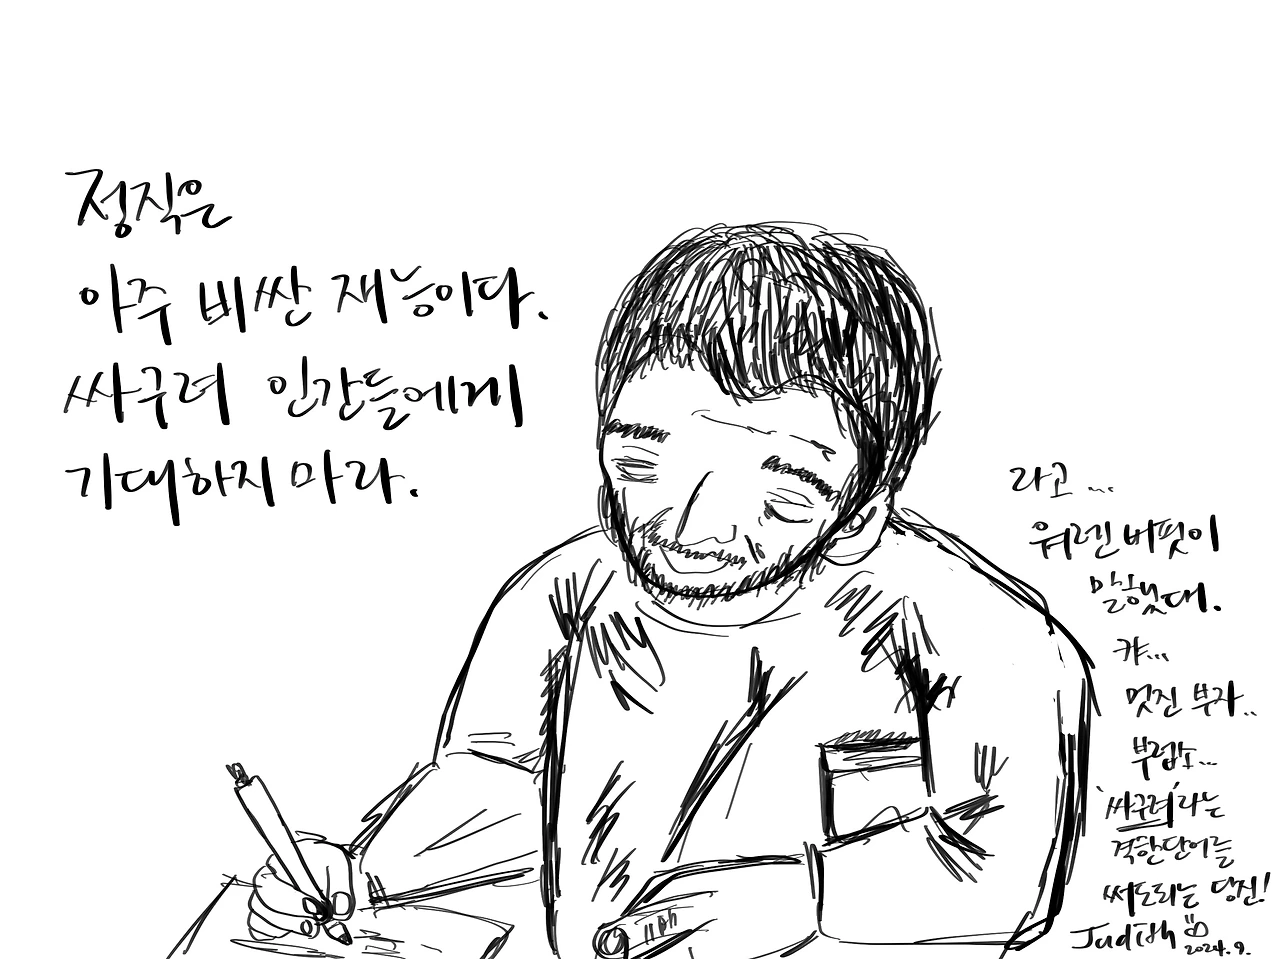 정직은
아주 비싼 재능이다.
싸구려 인간들에게
기대하지 마라.
라고...
워렌 버핏이
말했대.
캬...
멋진 부자..
부럽소...
'싸구려'라는
격한단어를
써도되는 당신!
Judith
2024.9.